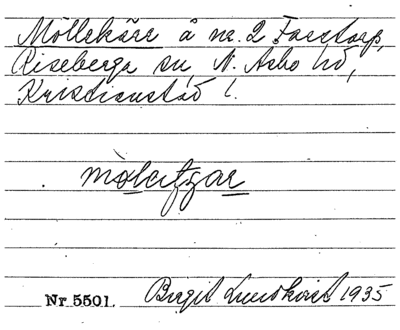 Möllekärr å nr. 2 Faxtorp,
Riseberga sn, N. Åsbo hd,
Kristianstad l.
Nr 5501. Birgit Lundkvist 1935